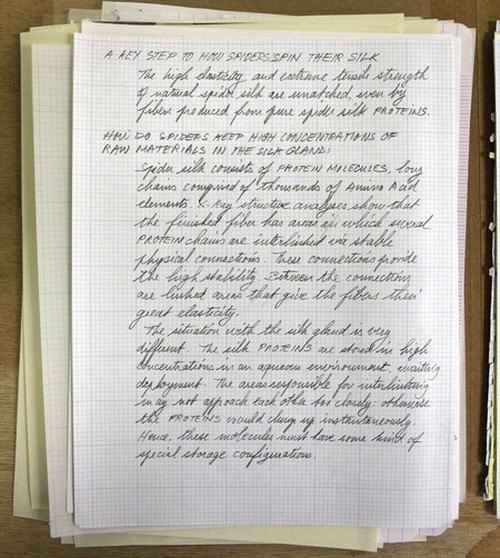 A KEY STEP TO HOW SPIDERS SPIN THEIR SILK
The high elasticity and extreme tensile strength
of natural spider silk are unmatched, even by
fibers produced from pure spider silk PROTEINS.
HOW DO SPIDERS KEEP HIGH CONCENTRATIONS OF
RAW MATERIALS IN THE SILK GLAND:
Spider silk consists of PROTEIN MOLECULES, long
chains comprised of thousands of Amino Acid
elements. X-Ray structure analyses show that
the finished fiber has areas in which several
PROTEIN chains are interlinked via stable
physical connections. These connections provide
the high stability. Between the connections
are unlinked areas that give the fibers their
great elasticity.
The situation with the silk gland is very
different. The silk PROTEINS are stored in high
concentrations in an aqueous environment, awaiting
deployment. The areas responsible for interlinking
may not approach each other too closely: otherwise
the PROTEINS would clump up instantaneously.
Hence, these molecules must have some kind of
special storage configurations.